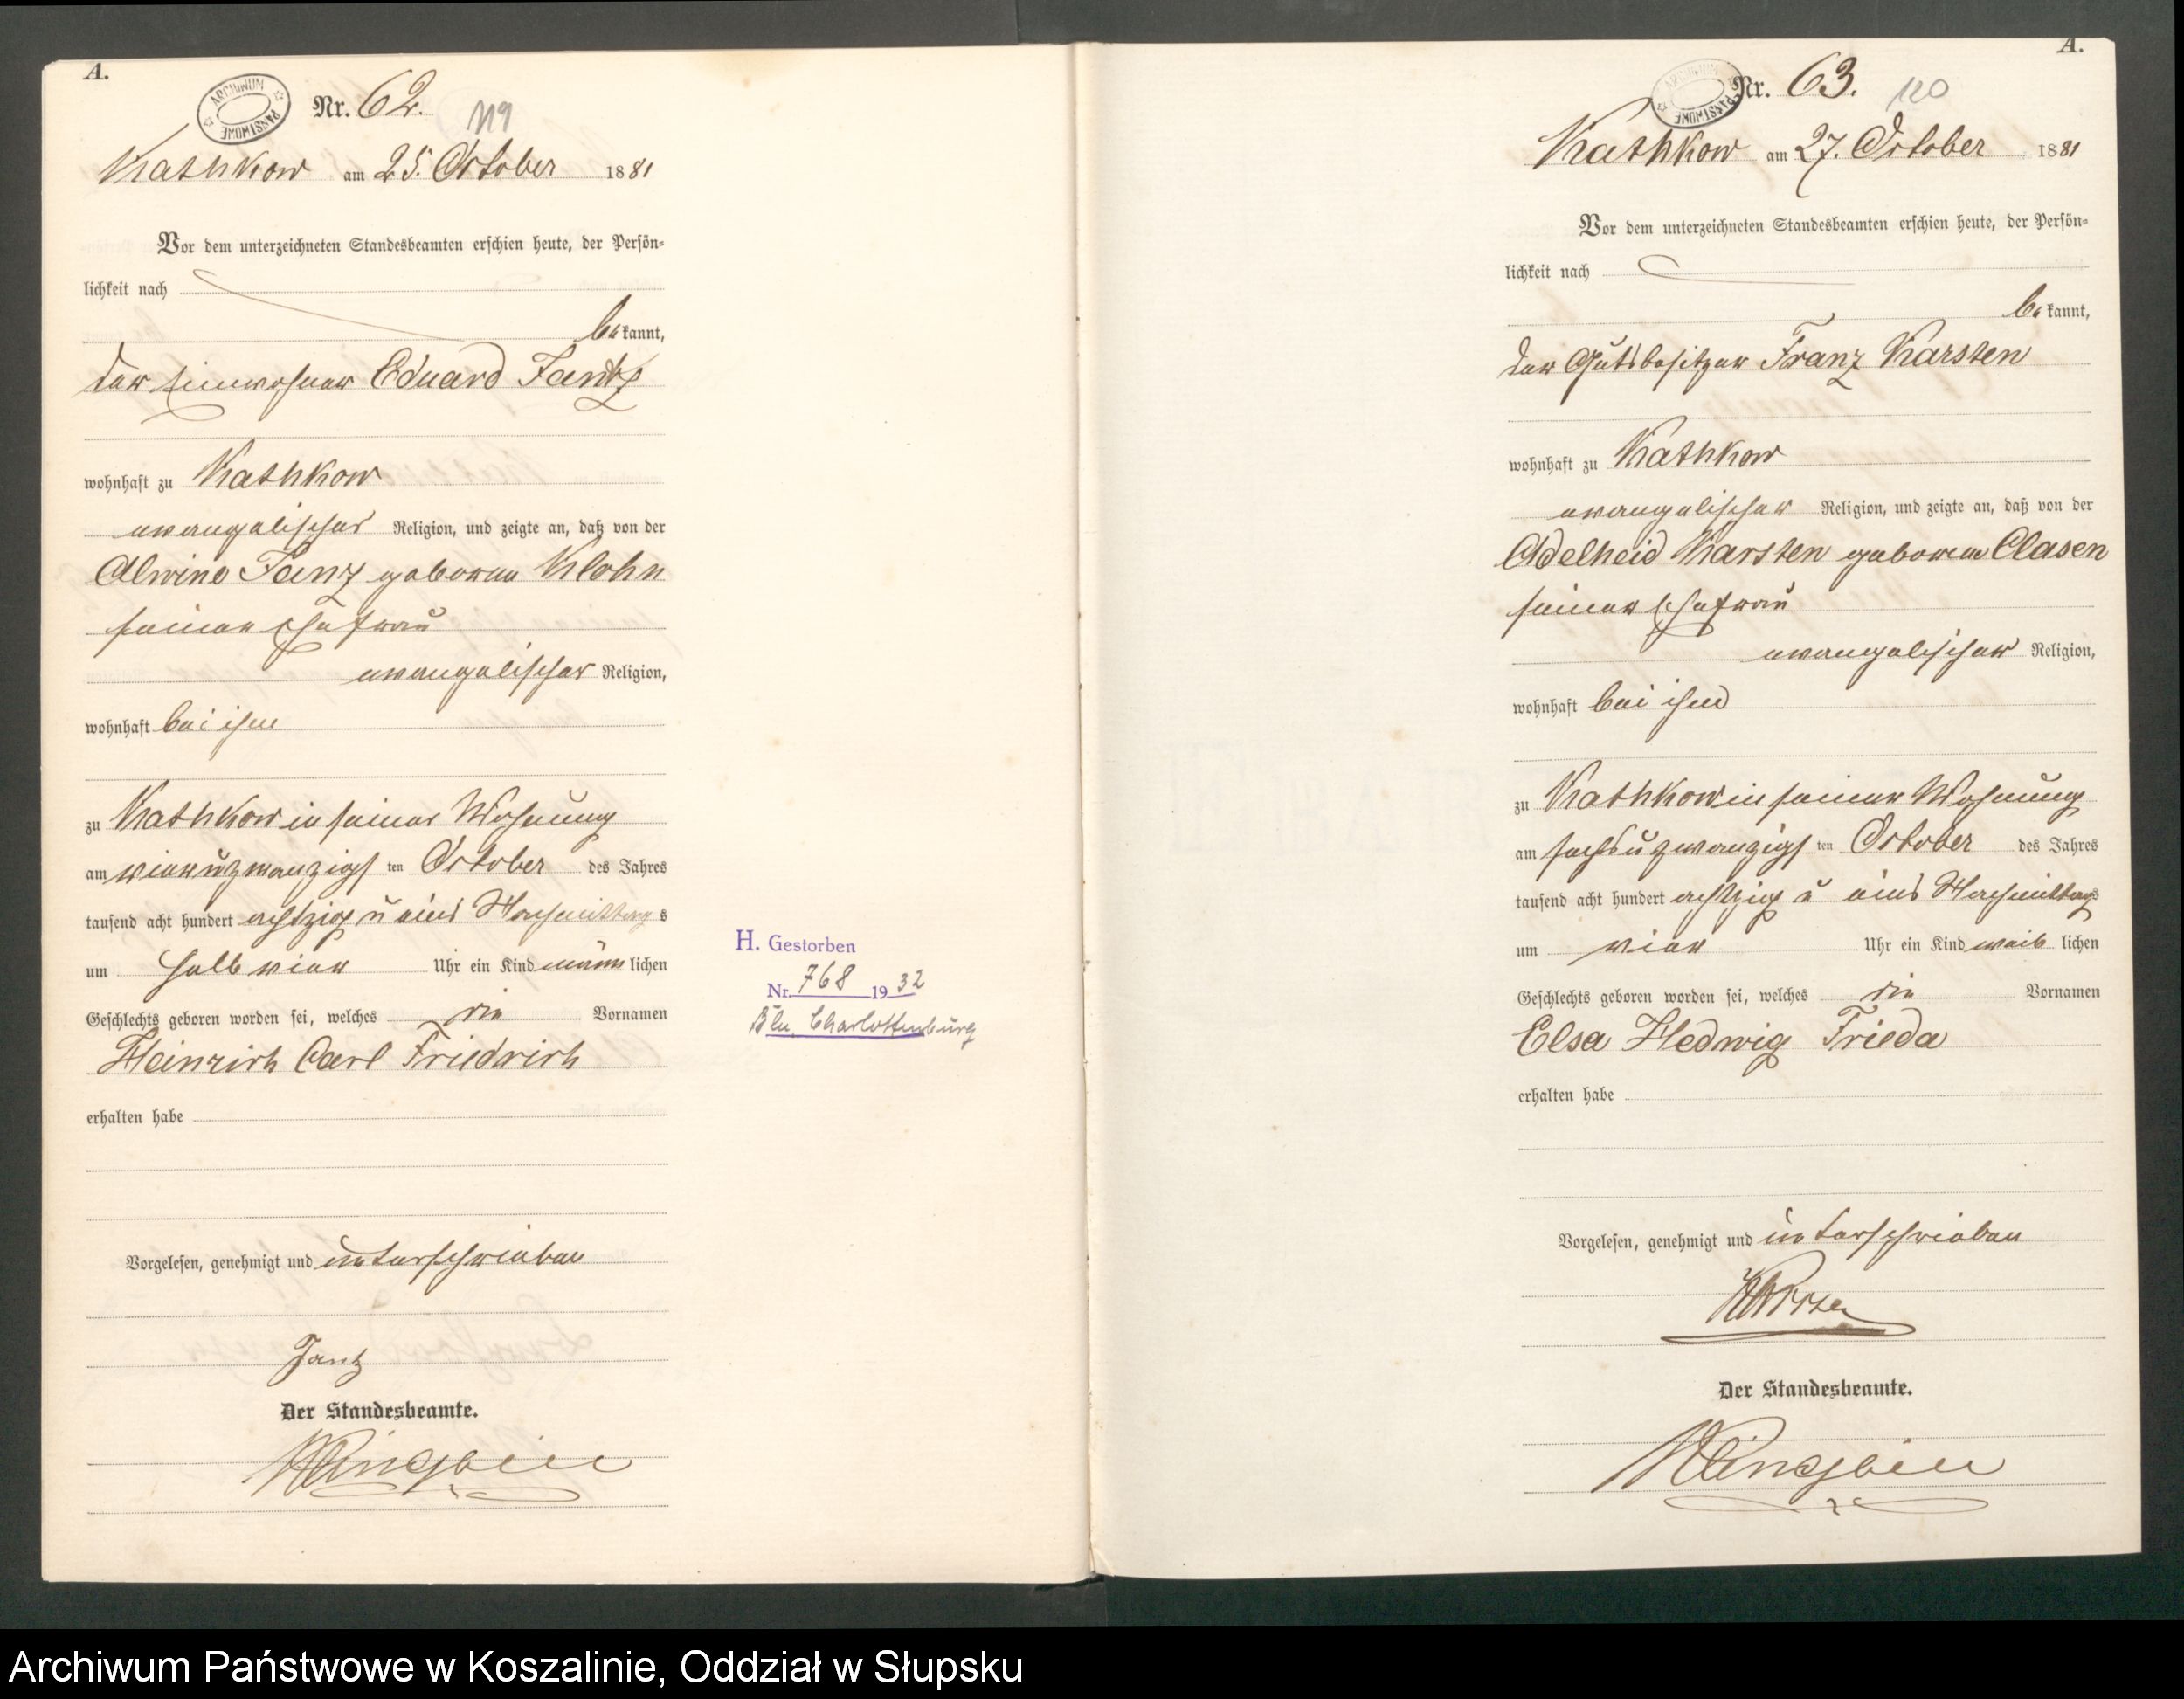 A.
ARCHIWUM PAŃSTWOWE
Nr. 62.
119
Kathkow am 25. October 1881
Vor dem unterzeichneten Standesbeamten erschien heute, der Persön-
lichkeit nach
bekannt,
der Einwohner Eduard Jantz
wohnhaft zu Kathkow
evangelischer Religion, und zeigte an, daß von der
Alwine Janz geborene Klohn
seiner Ehefrau
evangelischer Religion,
wohnhaft bei ihm
zu Kathkow in seiner Wohnung
am vierundzwanzigsten October des Jahres
tausend acht hundert achtzig u eins Nachmittags
um halb vier Uhr ein Kind männlichen
Geschlechts geboren worden sei, welches die Vornamen
Heinrich Carl Friedrich
erhalten habe
Vorgelesen, genehmigt und unterschrieben
Jantz
Der Standesbeamte.
H. Gestorben
Nr. 768 1932
Bln. Charlottenburg
A.
ARCHIWUM PAŃSTWOWE
Nr. 63.
120
Kathkow am 27. October 1881
Vor dem unterzeichneten Standesbeamten erschien heute, der Persön-
lichkeit nach
bekannt,
der Gutsbesitzer Franz Karsten
wohnhaft zu Kathkow
evangelischer Religion, und zeigte an, daß von der
Adelheid Karsten geborene Clasen
seiner Ehefrau
evangelischer Religion,
wohnhaft bei ihm
zu Kathkow in seiner Wohnung
am sechsu zwanzigsten October des Jahres
tausend acht hundert achtzig u eins Nachmittags
um vier Uhr ein Kind weiblichen
Geschlechts geboren worden sei, welches die Vornamen
Elsa Hedwig Frieda
erhalten habe
Vorgelesen, genehmigt und unterschrieben
Karsten
Der Standesbeamte.
Archiwum Państwowe w Koszalinie, Oddział w Słupsku